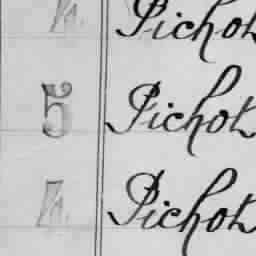 4. Pichot
5 Pichot
4. Pichot